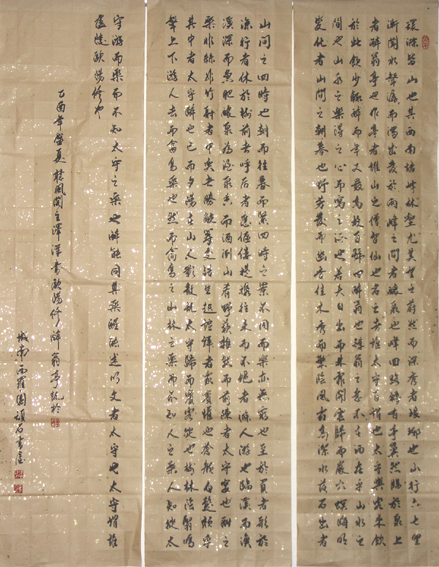 環滁皆山也其西南諸峰林壑尤美望之蔚然而深秀者琅琊也山行六七里
漸聞水聲潺潺而瀉出於兩峰之間者釀泉也峰回路轉有亭翼然臨於泉上
者醉翁亭也作亭者誰山之僧智仙也名之者誰太守自謂也太守與客來飲
於此飲少輒醉而年又最高故自號曰醉翁也醉翁之意不在酒在乎山水之
間也山水之樂得之心而寓之酒也若夫日出而林霏開雲歸而巖穴暝晦明
變化者山間之朝暮也野芳發而幽香佳木秀而繁陰風霜高潔水落石出者
山間之四時也朝而往暮而歸四時之景不同而樂亦無窮也至於負者歌於
途行者休於樹前者呼後者應傴僂提攜往來而不絕者滁人遊也臨溪而漁
溪深而魚肥釀泉為酒泉香而酒洌山肴野蔌雜然而前陳者太守宴也宴酣之
樂非絲非竹射者中奕者勝觥籌交錯坐起喧譁者衆賓懽也蒼顏白髮頹乎
其中者太守醉也已而夕陽在山人影散亂太守歸而賓客從也樹林陰翳鳴
聲上下遊人去而禽鳥樂也然而禽鳥知山林之樂而不知人之樂人知從太
守游而樂而不知太守之樂也醉能同其樂醒能述以文者太守也太守謂誰
廬陵歐陽修也
乙酉年盛夏 風閣主澤洋書歐陽修醉翁亭記於
城南西羅園頑石書屋